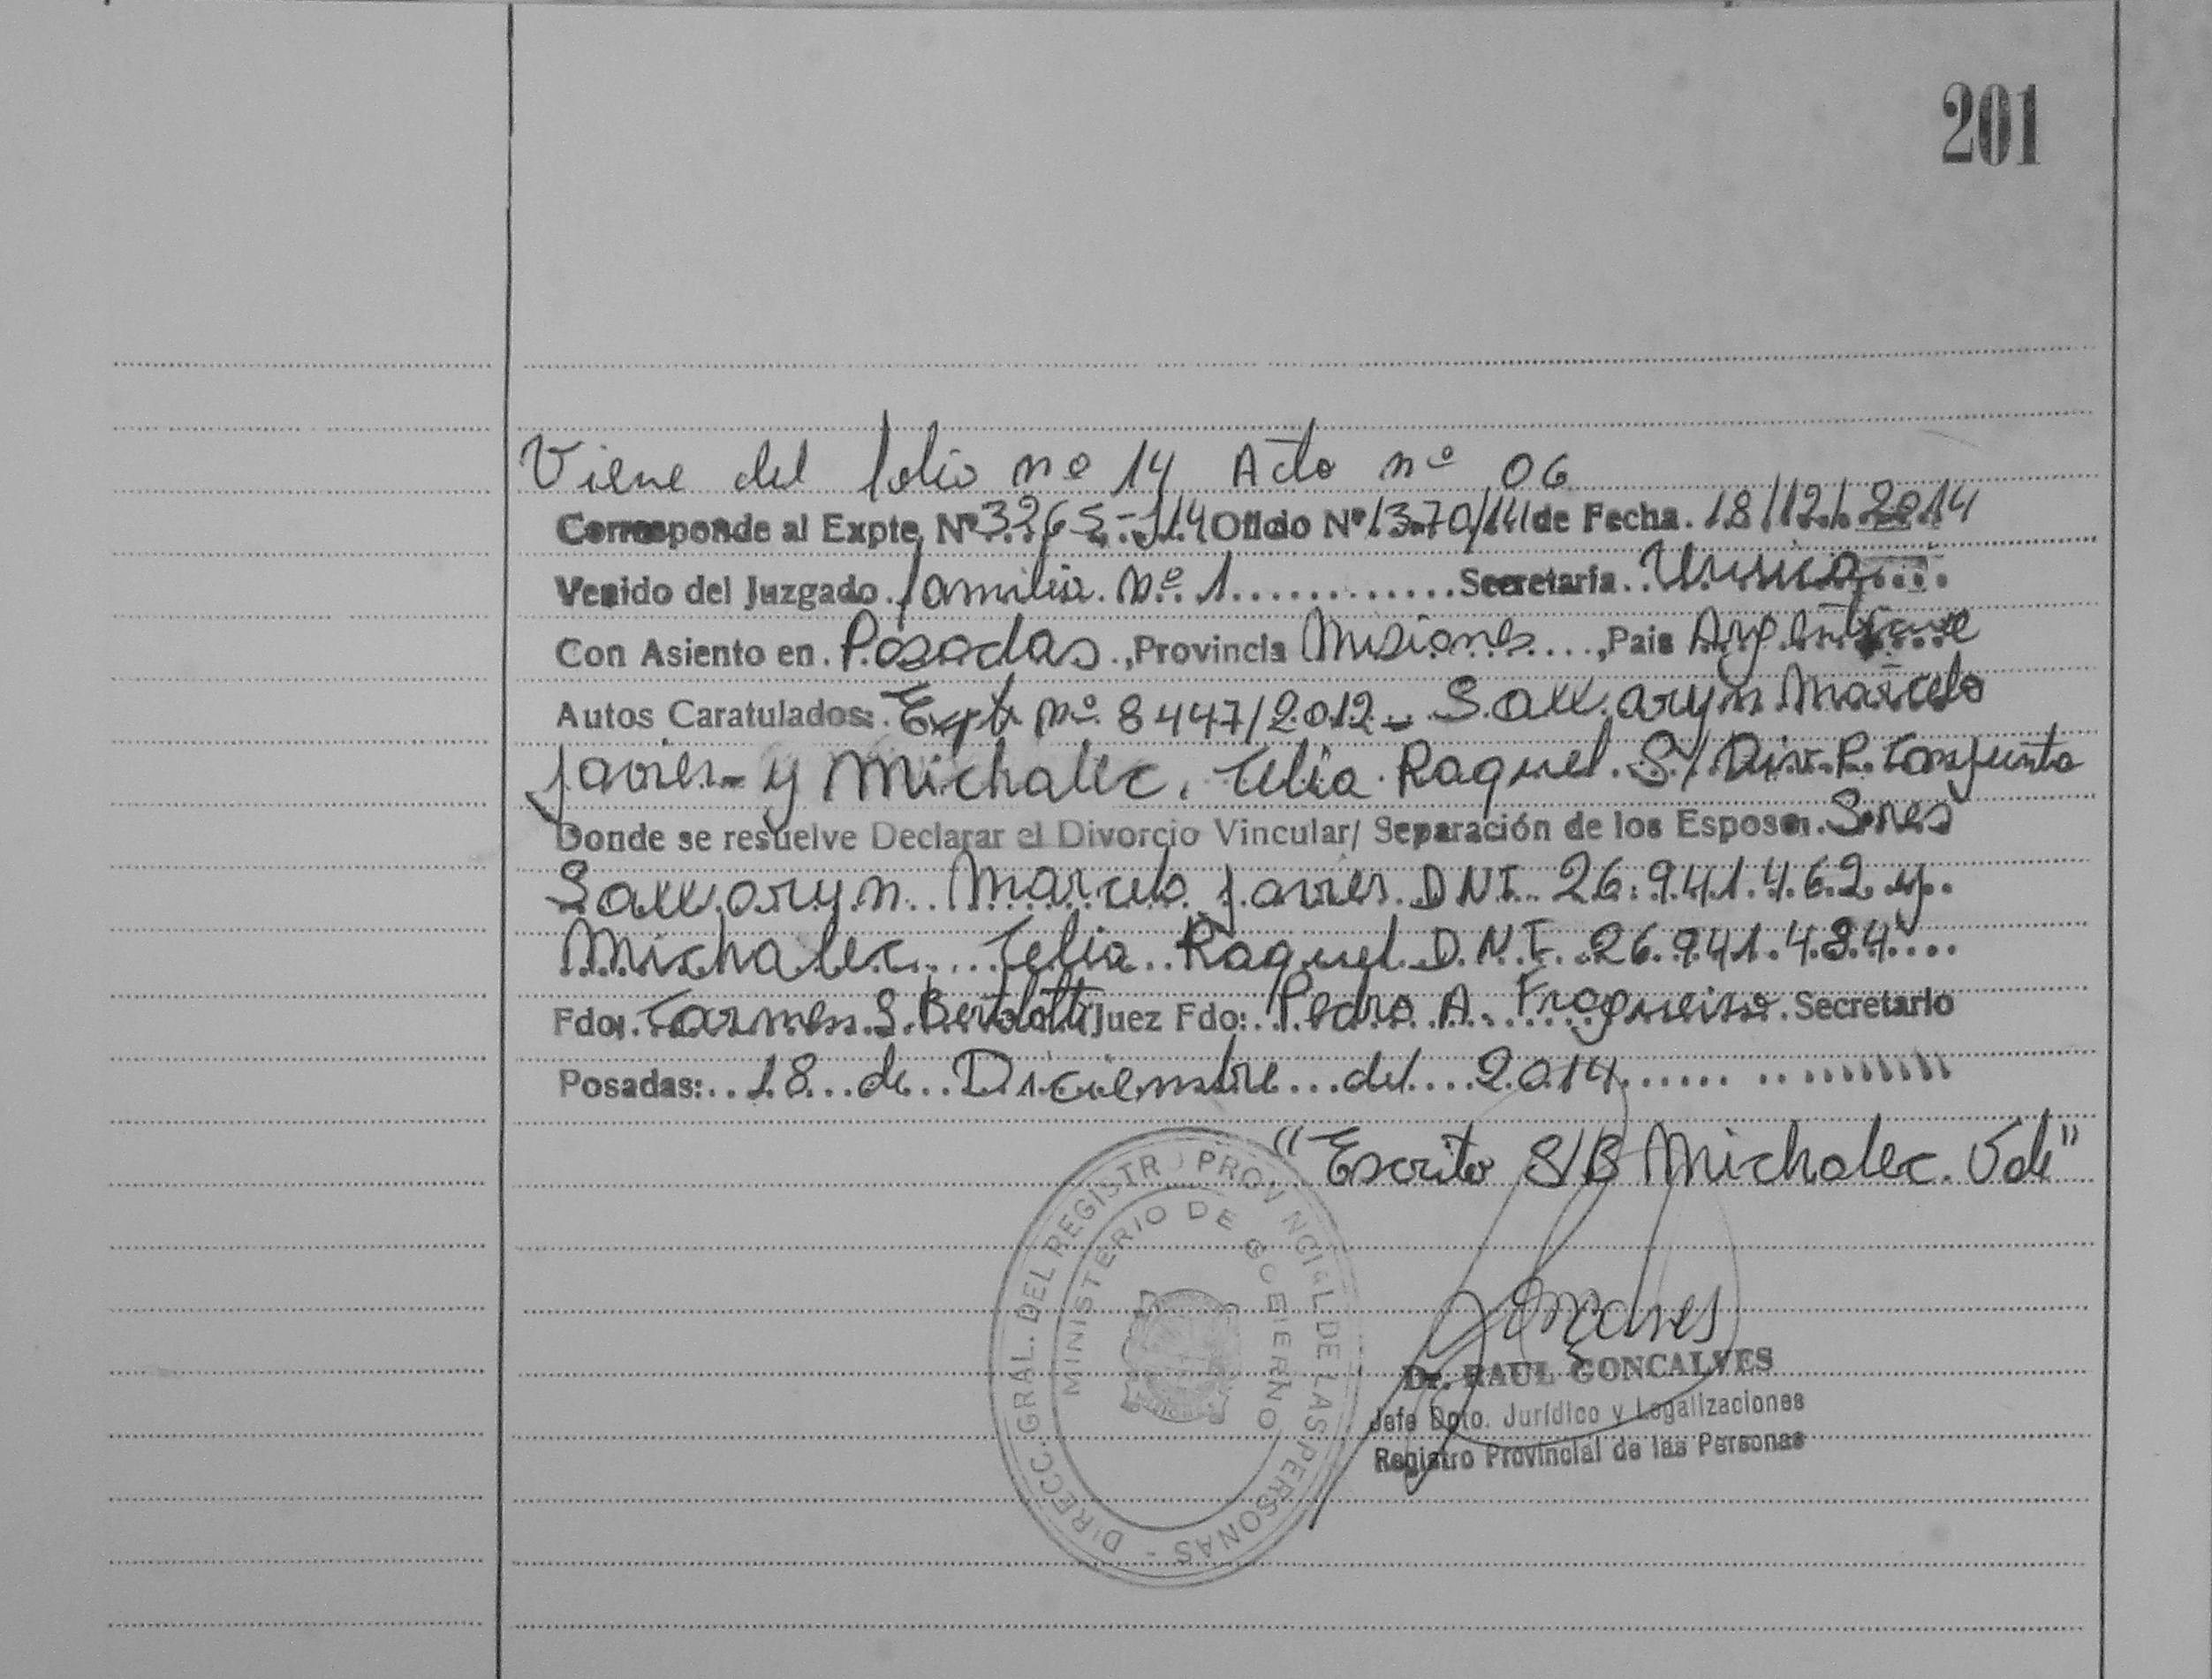 201
Viene del folio nº 14 Acta nº 06
Corresponde al Expte. Nº 3265-J14 Oficio Nº 1370/14 de Fecha. 18/12/2014
Venido del Juzgado familia Nº 1 Secretaría. Unica
Con Asiento en. Posadas, Provincia Misiones, Pais Argentina
Autos Caratulados: Expte Nº 8447/2012 - Marcelo
Javier - y Michalec, Celia Raquel S/ Div. P. Conjunta
Donde se resuelve Declarar el Divorcio Vincular/ Separación de los Esposos. Sres
Marcelo Javier DNI 26.941.462 y
Michalec Celia Raquel D.N.I. 26.941.484
Fdo: Carmen S. Bertolotti Juez Fdo: Pedro A. Fragueiro Secretario
Posadas: 18 de Diciembre del 2014
"Escrito S/B Michalec. Vale"
DIRECC. GRAL. DEL REGISTRO PROVINCIAL DE LAS PERSONAS -
MINISTERIO DE GOBIERNO
Dr. RAUL GONCALVES
Jefe Dpto. Jurídico y Legalizaciones
Registro Provincial de las Personas